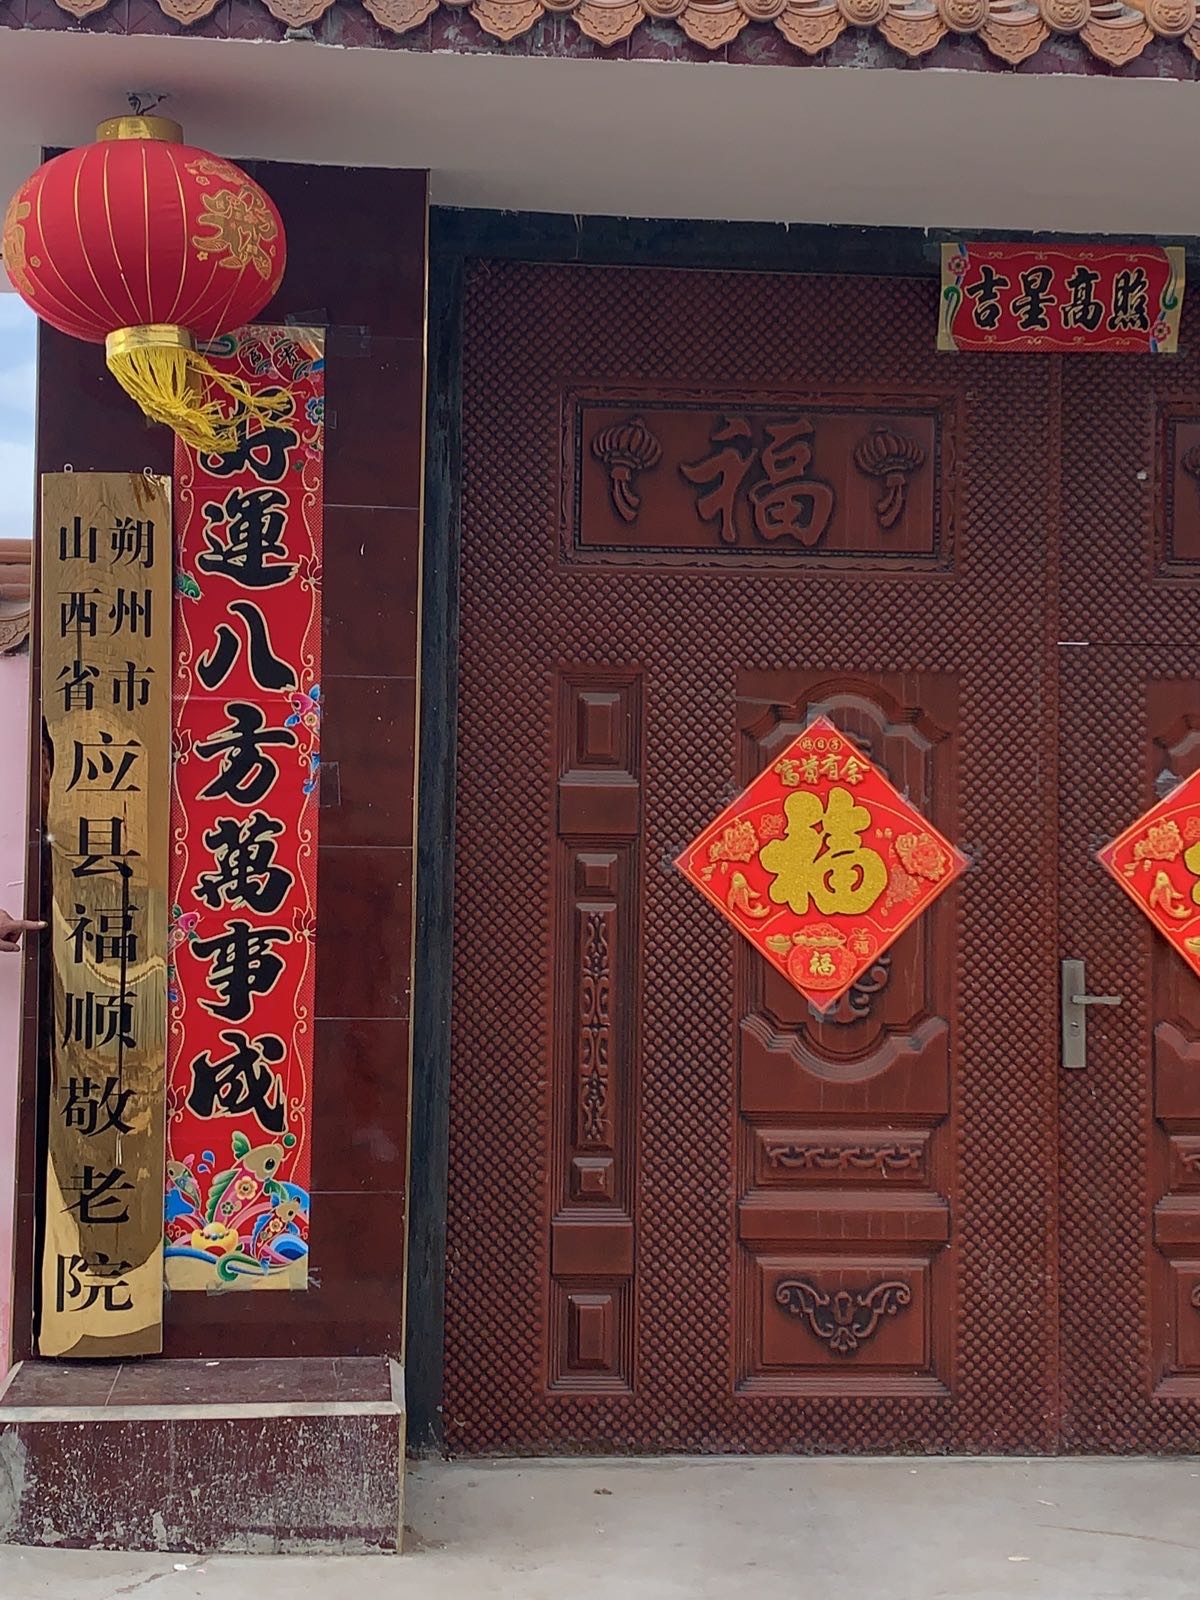 吉星高照
好運八方萬事成
山西省
朔州市
应县福顺敬老院
福
好日子
富贵有余
福
福
福